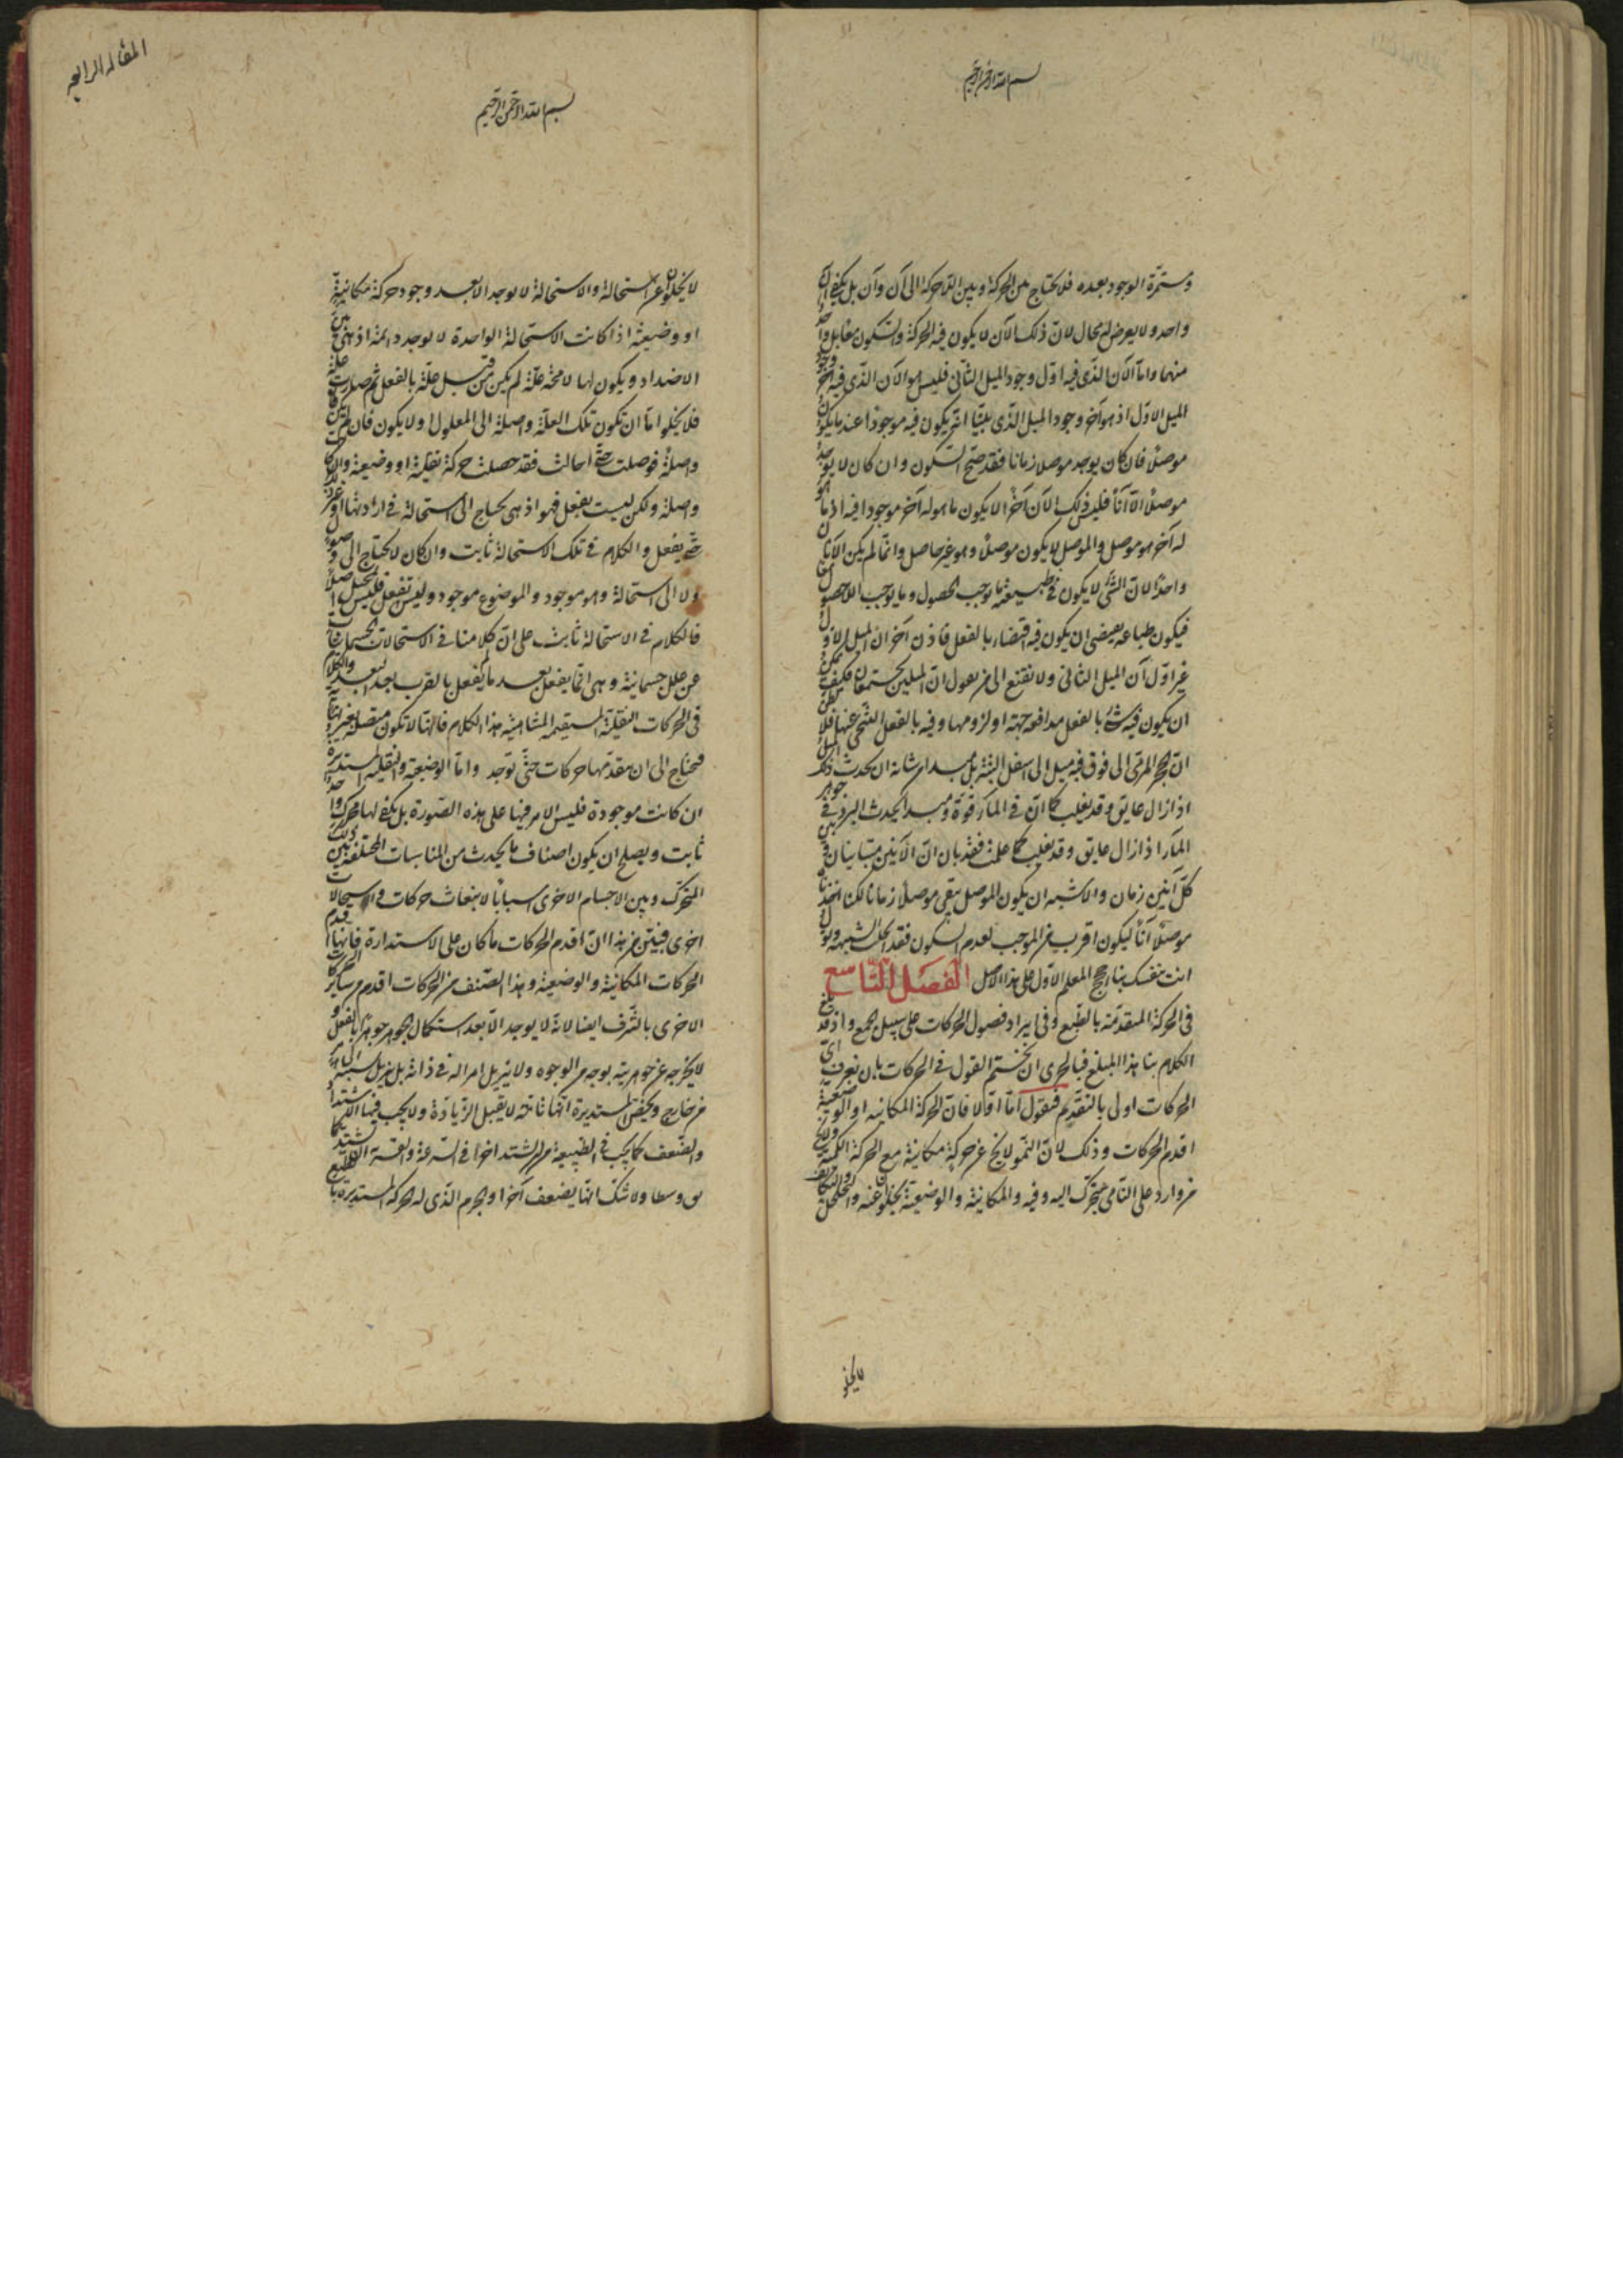 بسم الله الرحمن الرحيم
مستمرة الوجود بعده فلا يحتاج بين الحركة وبين اللاحركة الى آن وآن بل يكفي آن
واحد ولا يعرض محال لان ذلك الآن لا يكون فيه الحركة والسكون معا بل واحد
منهما واما الآن الذي فيه اول وجود الميل الثاني فليس هو الآن الذي فيه آخر وجود
الميل الاول اذ هو آخر وجود الميل الذي بينا انه يكون فيه موجودا عند ما يكون
موصلا فان كان يوجد موصلا زمانا فقد صح السكون وان كان لا يوجد
موصلا الا آنا فليس ذلك الآن آخرا الا يكون ما هو له آخر موجودا فيه اذ ما هو
له آخر هو موصل والموصل لا يكون موصلا وهو غير حاصل وانما لم يكن الآنان
واحدا لان الشيء لا يكون في طبيعته ما يوجب الحصول وما يوجب اللاحصول معا
فيكون طباعه يقتضي ان يكون فيه اقتضاء بالفعل فاذن آخر آن الميل الاول
غير اول آن الميل الثاني ولا نقنع الى من يقول ان الميلين يجتمعان فكيف يمكن
ان يكون فيه شيء بالفعل مدافعة جهة او لزومها وفيه بالفعل التنحي عنها فلا تظن
ان الحجر المرمي الى فوق فيه ميل الى اسفل البتة بل مبدأ من شانه ان يحدث ذلك الميل
اذا زال عايق وقد يغلب كما ان في الماء قوة ومبدأ يحدث البرد في جوهر
الماء اذا زال عايق وقد يغلب كما علمت فقد بان ان الآنين متباينان وبين
كل آنين زمان والاشبه ان يكون الموصل يبقى موصلا زمانا لكنا اخذناه
موصلا آنا ليكون اقرب من الموجب لعدم السكون فقد انحلت الشبهة وتول
انت بنفسك بناء حجج المعلم الاول على هذا الاصل الفصل التاسع
في الحركة المتقدمة بالطبع وفي ايراد فصول الحركات على سبيل الجمع واذ قد بلغ
الكلام بنا هذا المبلغ فبالحري ان نختم القول في الحركات بان نعرف اي
الحركات اولى بالتقدم فنقول اما اولا فان الحركة المكانية او الوضعية
اقدم الحركات وذلك لان النمو لا يخ عن حركة مكانية مع الحركة الكمية ولا يخ
من وارد على النامي يتحرك اليه وفيه والمكانية والوضعية يخلو عنه والتخلخل والتكاثف
لا يخلو
المقالة الرابعة
بسم الله الرحمن الرحيم
لا يخلوان عن استحالة والاستحالة لا توجد الا بعد وجود حركة مكانية
او وضعية اذا كانت الاستحالة الواحدة لا توجد دائمة اذ هي بين
الاضداد ويكون لها لا محة علة لم يكن من قبل علة بالفعل ثم صارت علة
فلا يخلوا اما ان تكون تلك العلة واصلة الى المعلول او لا يكون فان لم يكن
واصلة فوصلت حتى احالت فقد حصلت حركة نقلية او وضعية وان كانت
واصلة ولكن ليست بفعل فهو اذ هي يحتاج الى استحالة في ارادتها او غير ذلك
حتى يفعل والكلام في تلك الاستحالة ثابت وان كان لا يحتاج الى وصول
ولا الى استحالة وهو موجود والموضوع موجود وليس تفعل فليس بمحيل اصلا
فالكلام في الاستحالة ثابت على ان كلامنا في الاستحالات الجسمانيات
عن علل جسمانية وهي انما يفعل بعد ما يفعل بالقرب بعد البعد والكلام
في الحركات النقلية المستقيمة المتناهية هذا الكلام فانها لا تكون متصلة بغير نهاية
فيحتاج الى ان مقدمها حركات حتى توجد واما الوضعية والنقلية المستديرة
ان كانت موجودة فليس الامر فيها على هذه الصورة بل يكفي لها محرك واحد
ثابت ويصلح ان يكون اصناف ما يحدث من المناسبات المختلفة بين ذلك
المتحرك وبين الاجسام الاخرى اسبابا لانبعاث حركات واستحالات
اخرى فبين من هذا ان اقدم الحركات ما كان على الاستدارة فانها اقدم
الحركات المكانية والوضعية وهذا الصنف من الحركات اقدم من ساير الحركات
الاخرى بالشرف ايضا لانه لا يوجد الا بعد استكمال الجوهر جوهرا بالفعل و
لا يخرجه عن جوهريته بوجه من الوجوه ولا يزيل امرا له في ذاته بل يزيل نسبته الى امر
من خارج ويخص المستديرة انها تامة لا يقبل الزيادة ولا يجب فيها الاشتداد
والضعف كما يجب في الطبيعية من ان تشتد اخرا في السرعة والقسرية ان تشتد
وسطا ولا شك انها يضعف آخرا والجرم الذي له الحركة المستديرة بالطبع